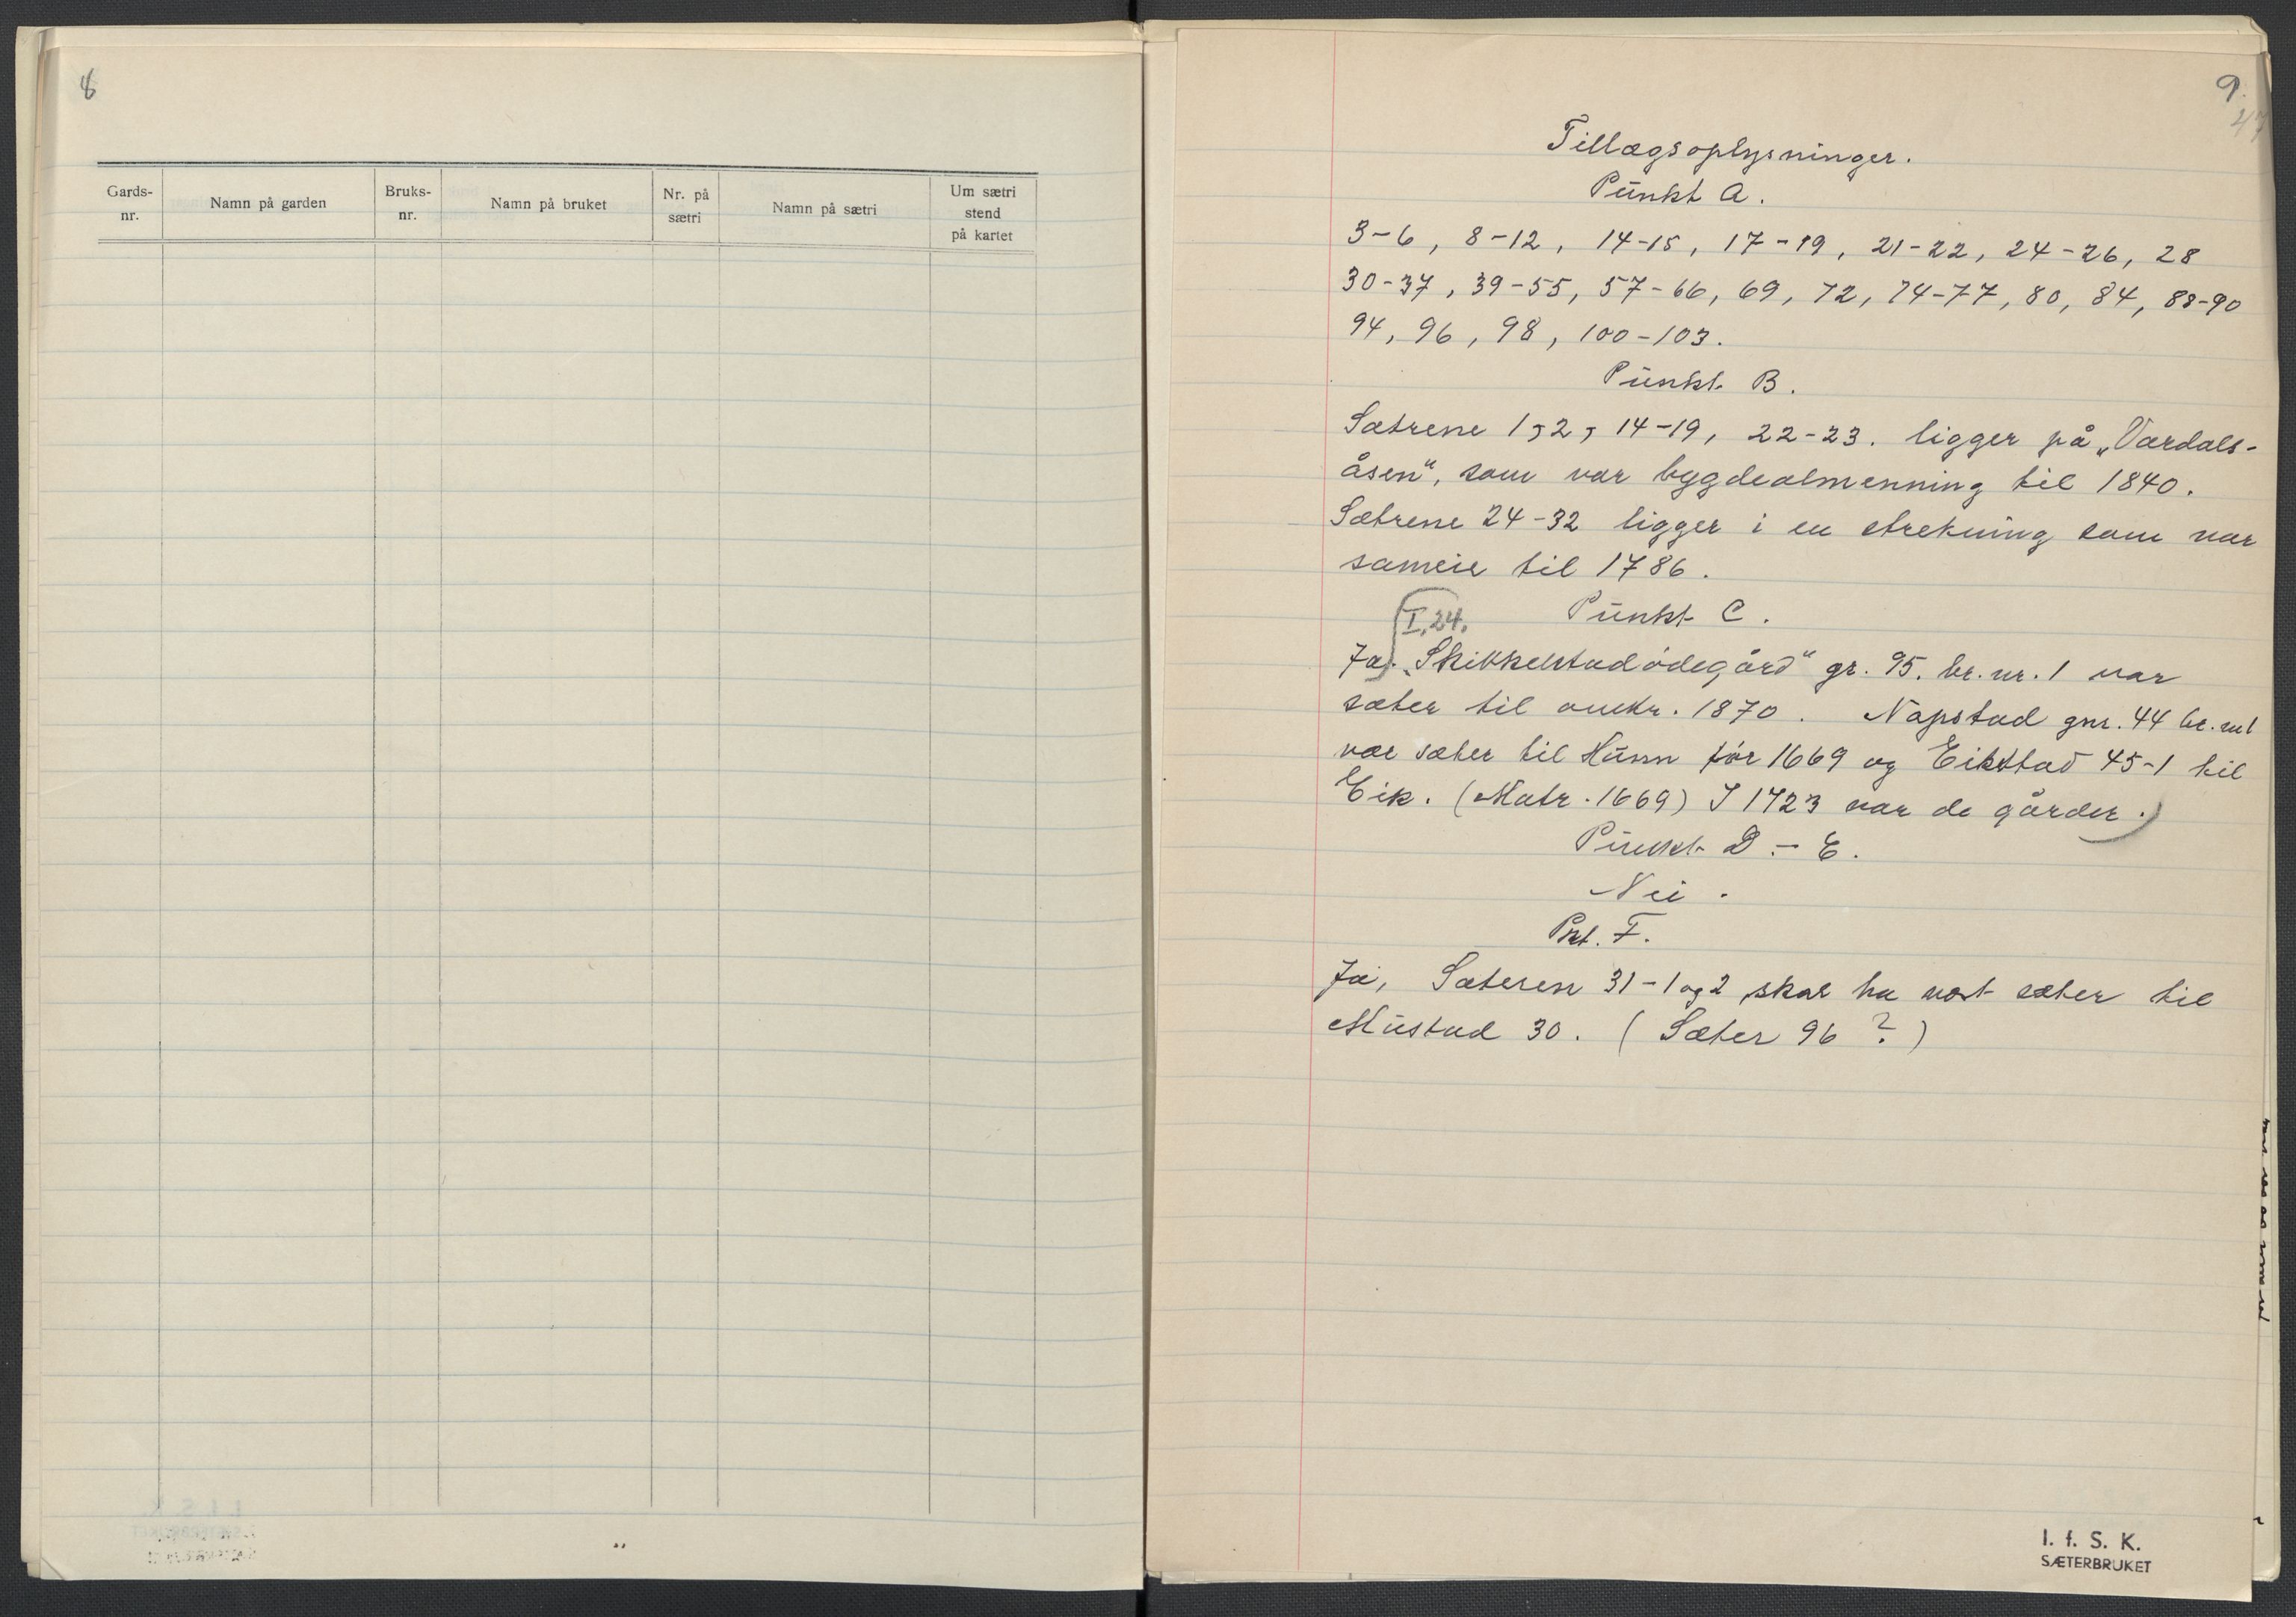 8
Gards-
nr.
Namn på garden
Bruks-
nr.
Namn på bruket
Nr. på
sætri
Namn på sætri
Um sætri
stend
på kartet
9.
47
Tillægsoplysninger.
Punkt A.
3-6, 8-12, 14-15, 17-19, 21-22, 24-26, 28
30-37, 39-55, 57-66, 69, 72, 74-77, 80, 84, 88-90
94, 96, 98, 100-103.
Punkt B.
Sætrene 1, 2, 14-19, 22-23. ligger på „Vardals-
åsen", som var bygdealmenning til 1840.
Sætrene 24-32 ligger i en strekning som var
sameie til 1786.
I, 24.
Punkt C.
Ja. „Skikkelstadødegård" gr. 95. br. nr. 1 var
sæter til omkr. 1870. Napstad gnr. 44 br. nr 1
var sæter til Hunn før 1669 og Eikstad 45-1 til
Eik. (Matr. 1669) I 1723 var de gårder.)
Punkt D - E.
Nei.
Pkt. F.
Ja, Sæteren 31-1 og 2, skal ha vært sæter til
Mustad 30. (Sæter 96 ?)
I. f. S. K.
SÆTERBRUKET